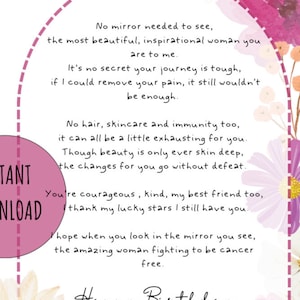 No mirror needed to see,
the most beautiful, inspirational woman you
are to me.
It's no secret your journey is tough,
if I could remove your pain, it still wouldn't
be enough.
No hair, skincare and immunity too,
it can all be a little exhausting for you.
Though beauty is only ever skin deep,
the changes for you go without defeat.
You're courageous , kind, my best friend too,
I thank my lucky stars I still have you.
I hope when you look in the mirror you see,
the amazing woman fighting to be cancer
free.
Happy Birthday